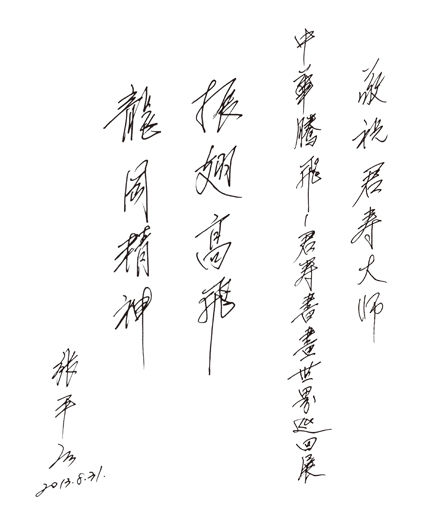 敬祝君寿大师
中華騰飛—君寿書畫世界巡回展
振翅高飛
龍岡精神
張平沼
2013.8.31.